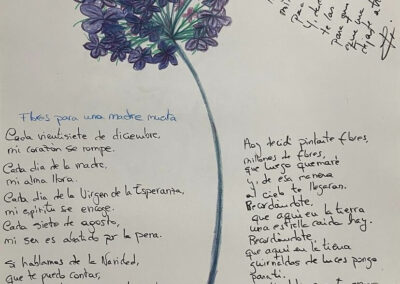 Flores para una madre muerta
Cada veintisiete de diciembre,
mi corazón se rompe.
Cada día de la madre,
mi alma llora.
Cada día de la Virgen de la Esperanza,
mi espíritu se encoge.
Cada siete de agosto,
mi ser es abatido por la pena.
Si hablamos de la Navidad,
que te puedo contar,
Hoy decidí pintarte flores,
millones de flores,
que luego quemaré
y, de esa manera
al cielo te llegaran.
Recordándote,
que aquí en la tierra
una estrella caída hay.
Recordándote,
que aquí en la tierra
guirnaldas de luces pongo
para ti.